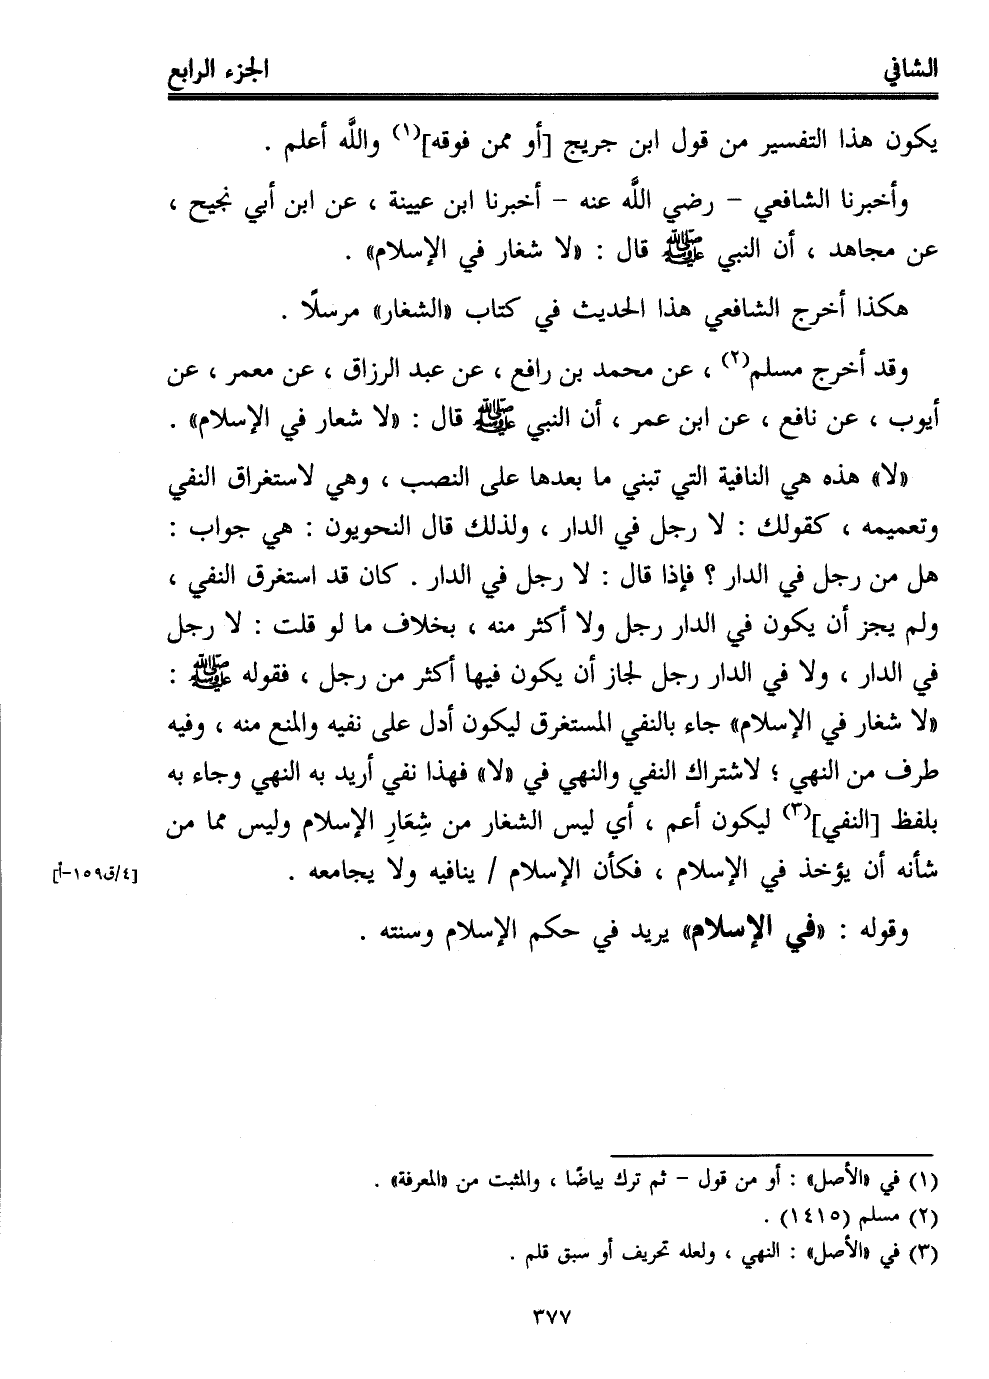 الشافي
الجزء الرابع
يكون هذا التفسير من قول ابن جريج [أو ممن فوقه](١) والله أعلم .
وأخبرنا الشافعي - رضي الله عنه - أخبرنا ابن عيينة ، عن ابن أبي نجيح ،
عن مجاهد ، أن النبي ﷺ قال : «لا شغار في الإسلام» .
هكذا أخرج الشافعي هذا الحديث في كتاب «الشغار» مرسلًا .
وقد أخرج مسلم(٢) ، عن محمد بن رافع ، عن عبد الرزاق ، عن معمر ، عن
أيوب ، عن نافع ، عن ابن عمر ، أن النبي ﷺ قال : «لا شعار في الإسلام» .
«لا» هذه هي النافية التي تبني ما بعدها على النصب ، وهي لاستغراق النفي
وتعميمه ، كقولك : لا رجل في الدار ، ولذلك قال النحويون : هي جواب :
هل من رجل في الدار ؟ فإذا قال : لا رجل في الدار . كان قد استغرق النفي ،
ولم يجز أن يكون في الدار رجل ولا أكثر منه ، بخلاف ما لو قلت : لا رجل
في الدار ، ولا في الدار رجل لجاز أن يكون فيها أكثر من رجل ، فقوله ﷺ :
«لا شغار في الإسلام» جاء بالنفي المستغرق ليكون أدل على نفيه والمنع منه ، وفيه
طرف من النهي ؛ لاشتراك النفي والنهي في «لا» فهذا نفي أريد به النهي وجاء به
بلفظ [النفي](٣) ليكون أعم ، أي ليس الشغار من شِعَارِ الإسلام وليس مما من
شأنه أن يؤخذ في الإسلام ، فكأن الإسلام / ينافيه ولا يجامعه .
[٤/ق١٥٩-أ]
وقوله : «في الإسلام» يريد في حكم الإسلام وسنته .
(١) في «الأصل» : أو من قول - ثم ترك بياضًا ، والمثبت من «المعرفة» .
(٢) مسلم (١٤١٥) .
(٣) في «الأصل» : النهي ، ولعله تحريف أو سبق قلم .
٣٧٧